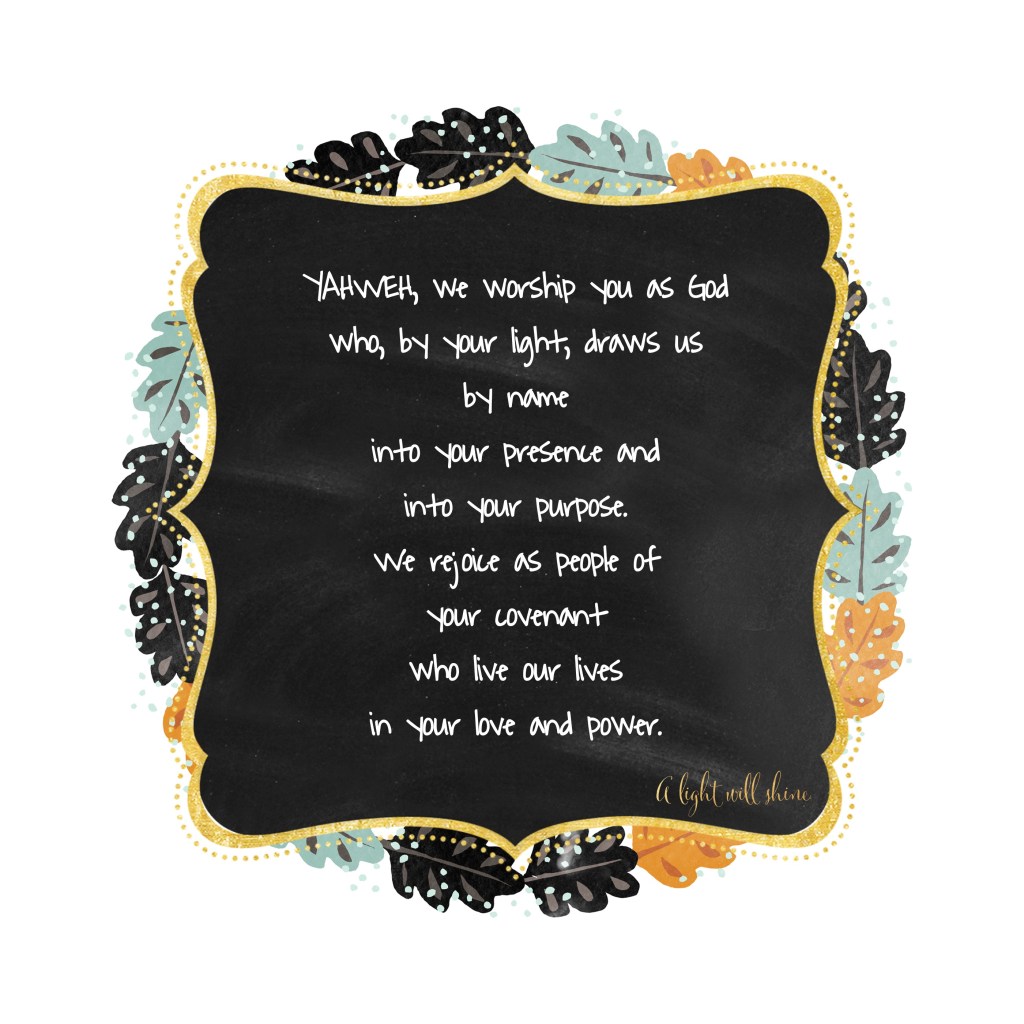 YAHWEH, we worship you as God
who, by your light, draws us
by name
into your presence and
into your purpose.
We rejoice as people of
your covenant
who live our lives
in your love and power.
A light will shine